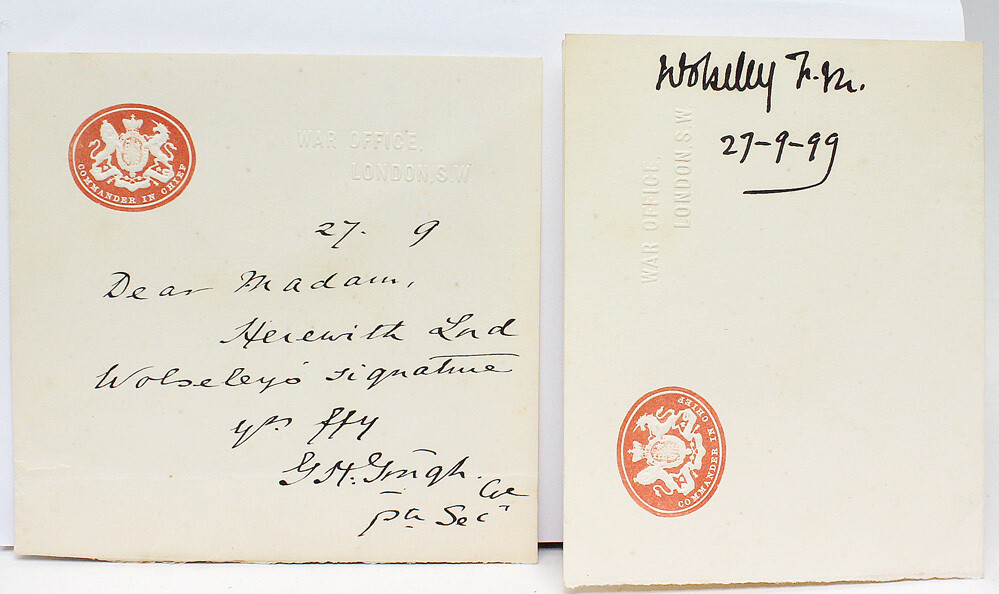 COMMANDER IN CHIEF
WAR OFFICE,
LONDON, S.W
27. 9
Dear Madam,
Herewith Lord
Wolseley's signature
yrs ffy
G.H. Gough. Col
Pte Secy
Wolseley F.M.
27-9-99
WAR OFFICE,
LONDON, S.W
COMMANDER IN CHIEF